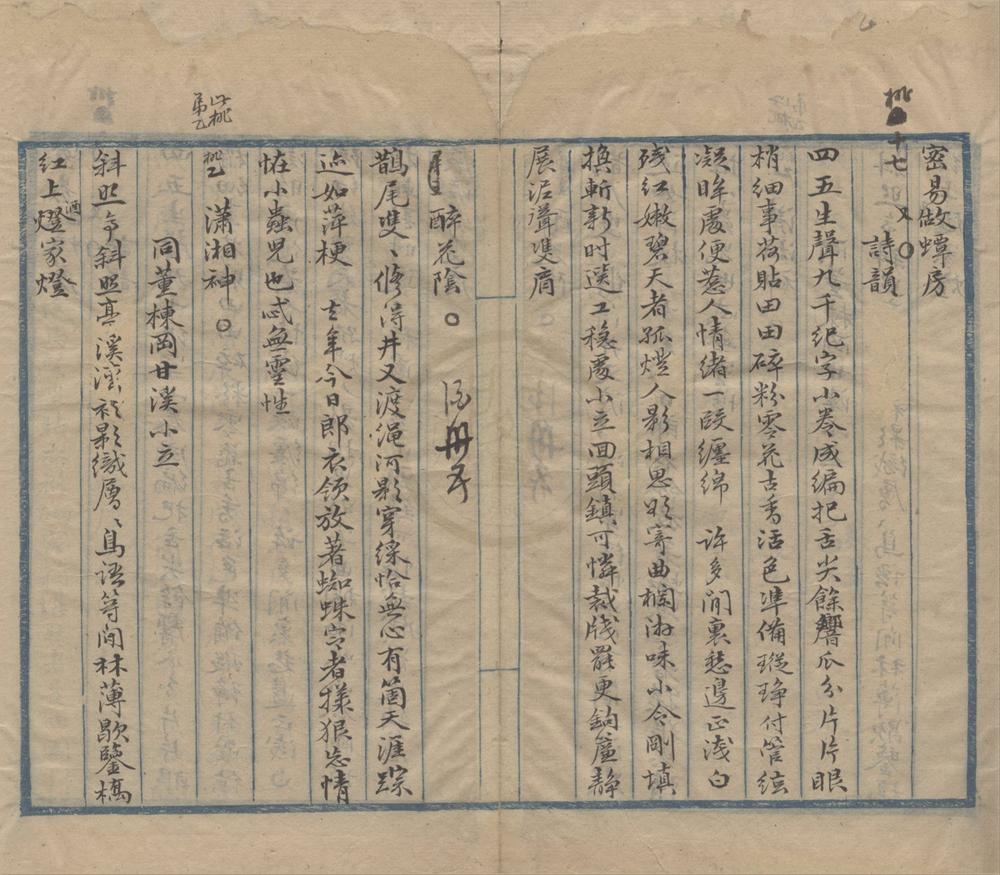 密易做蟫房
桃 十七 又 詩韻
四五生聲九千紀字小卷成編把舌尖餘響瓜分片片眼
梢細事荷貼田田碎粉零花古香活色準備瑽琤付管絃
凝眸處便惹人情緒一段纏綿 許多閒裏愁邊正淺白
殘紅嫩碧天者孤燈人影相思欲寄曲欄游味小令剛填
換斬新时選工穩處小立回頭鎮可憐裁牋罷更銅簾靜
展泥聳隻肩
醉花陰
鵲尾雙、修得井又渡繩河影穿綵恰無心有箇天涯踪
迹如萍梗 去年今日郎衣領放著蜘蛛字者樣狠忘情
怪小蟲兒也忒無靈性
此桃弟乙
桃乙 瀟湘神
同董棟岡甘溪小立
斜照亭溪 影織層、鳥語等閒林薄歇鑒橋
紅上燈家燈
酒